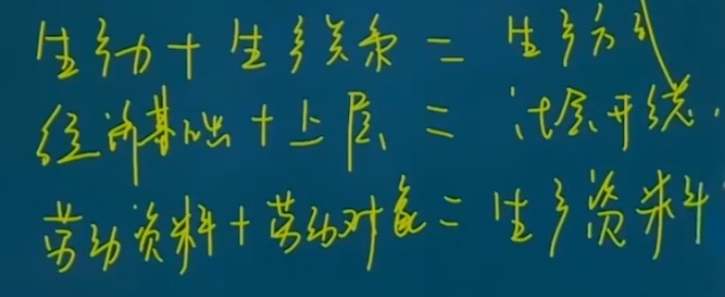 生产力+生产关系=生产方式
经济基础+上层=社会形态.
劳动资料+劳动对象=生产资料